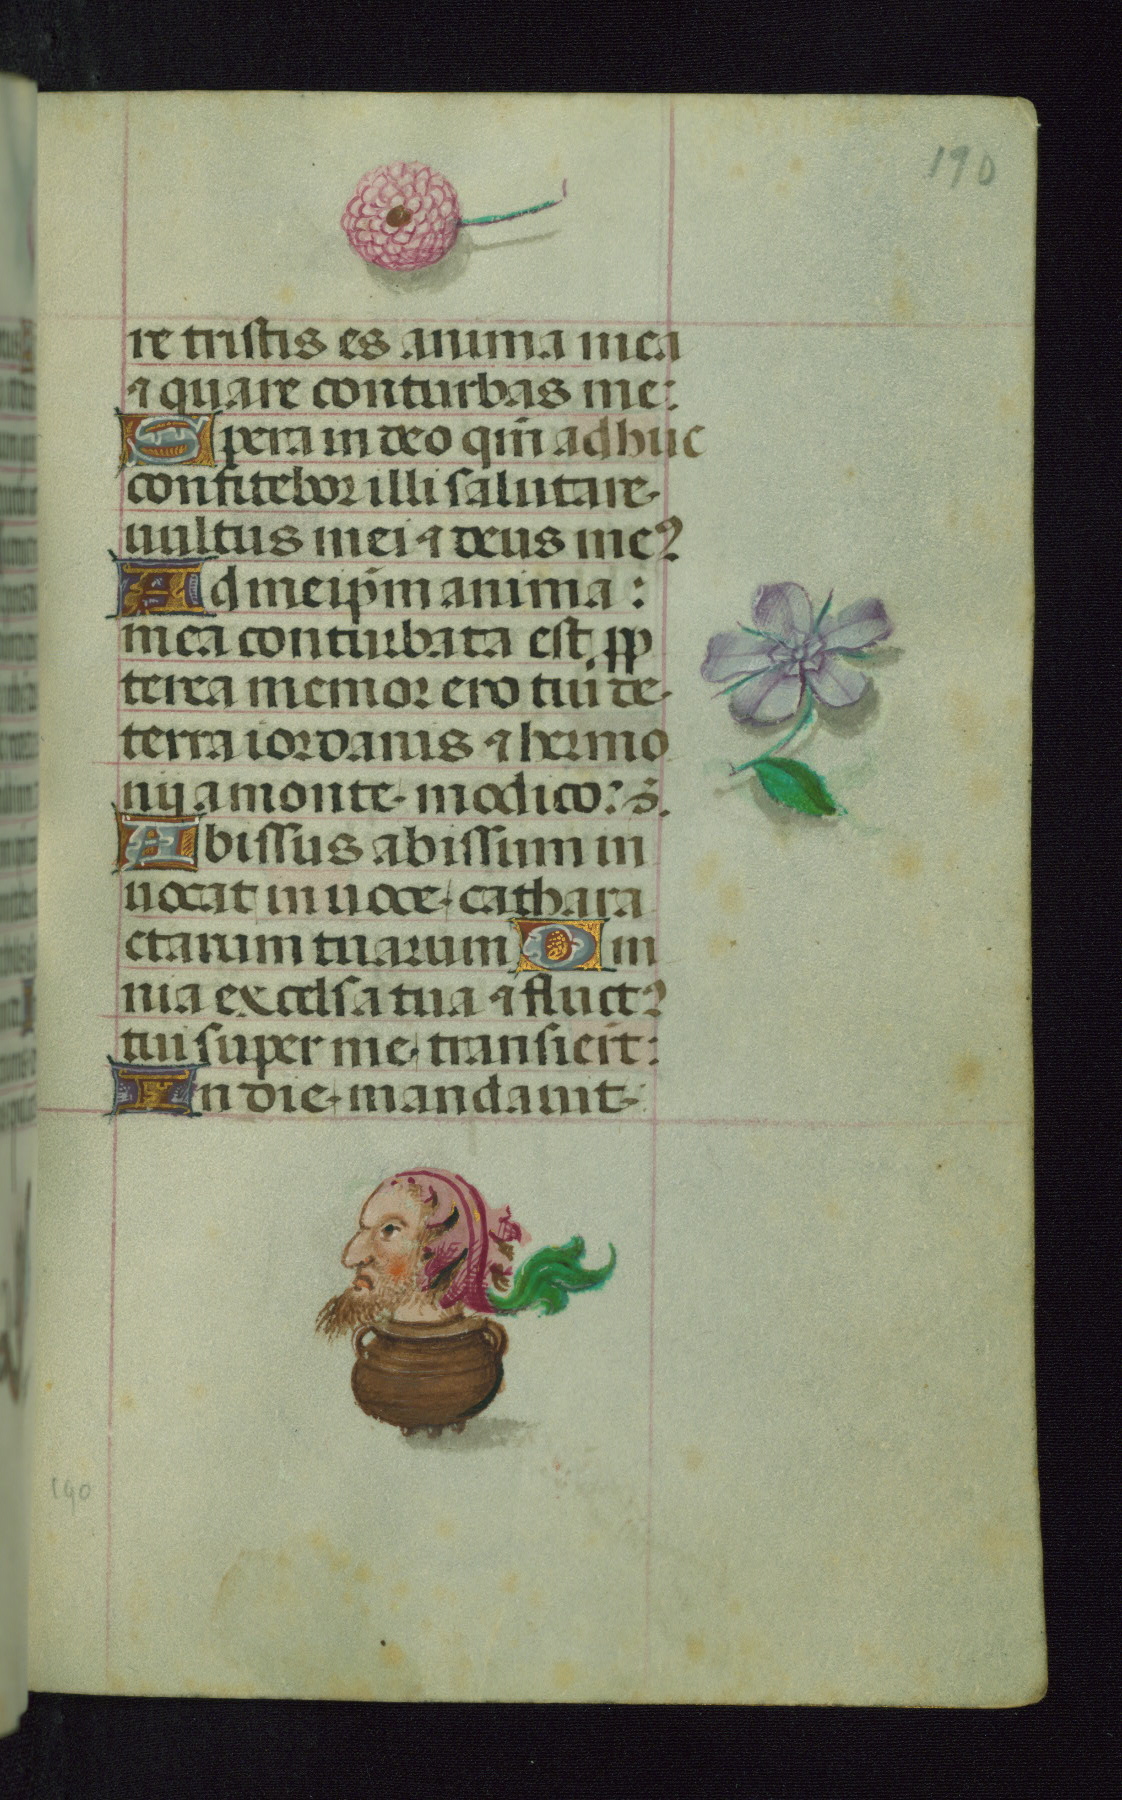 190
re tristis es anima mea
⁊ quare conturbas me:
Spera in deo qm̄ adhuc
confitebor illi salutare
uultus mei ⁊ deus meꝰ
Ad meip̄m anima:
mea conturbata est ꝓp
terea memor ero tui de
terra iordanis ⁊ hermo
nij a monte modico:
Abissus abissum in
uocat in uoce cathara
ctarum tuarum Om
nia excelsa tua ⁊ fluctꝰ
tui super me transiert:
In die mandauit
190